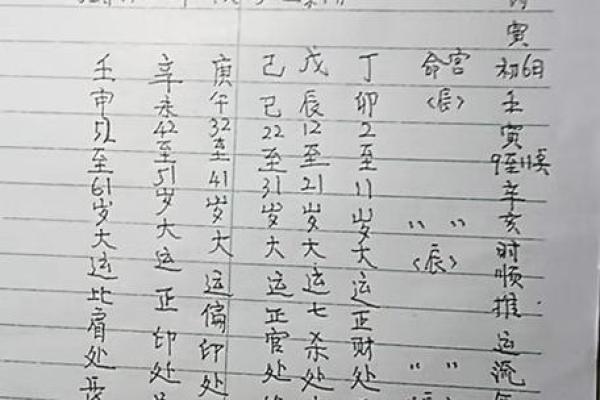 寅初6日壬寅9至11奌辛亥时顺推运流
命宫〈辰〉〃〃〈辰〉〃〃
丁卯2至11岁大运正财处
戊辰12至21岁大运七杀处
己巳22至31岁大运正官处
庚午32至41岁大运偏印处
辛未42至51岁大运正印处
壬申52至61岁大运比肩处长